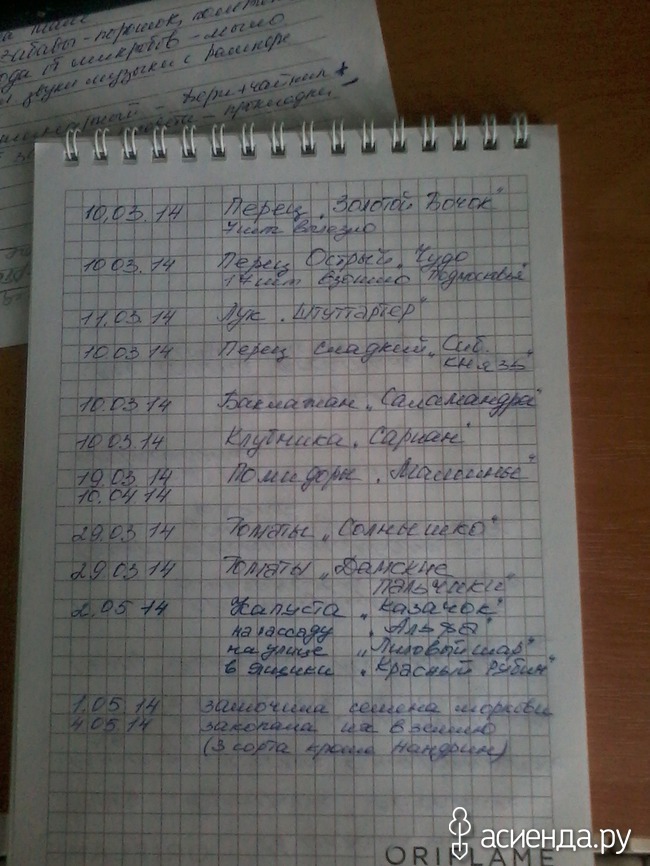 забавы - порошок,
микробов - мыло
звуки музыки с
10.03.14 Перец "Золотой Бочок"
7 шт вылезло
10.03.14 Перец Острый "Чудо
17 шт взошло Подмосковья"
11.03.14 Лук "Штуттгартер"
10.03.14 Перец сладкий "Сиб.
князь"
10.03.14 Баклажан "Саламандра"
10.03.14 Клубника "Сариан"
19.03.14 Помидоры "Малышные"
10.04.14
29.03.14 Томаты "Солнышко"
29.03.14 Томаты "Дамские
пальчики"
2.05.14 Капуста "Казачок"
на рассаду "Альфа"
на улице "Лиловый шар"
в ящики "Красный рубин"
1.05.14 замочила семена моркови
4.05.14 закопала их в землю
(3 сорта кроме Нандрин)
ORIFLAME
асиенда.ру